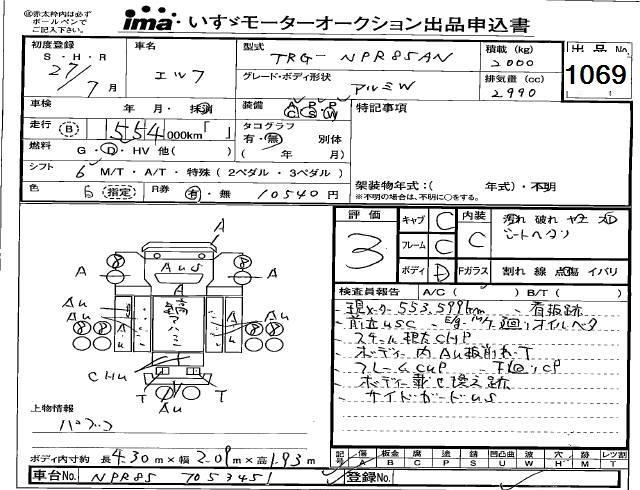 ※赤太枠内は必ずボールペンでご記入下さい。
ima・いすゞモーターオークション出品申込書
初度登録 S・H・R 27/7月
車名 エルフ
型式 TRG- NPR85AN
積載(kg) 2000
出品No. 1069
グレード・ボディ形状 アルミW
排気量(cc) 2990
車検 年 月・抹消
装備 AC PS PW
特記事項
走行 B 554,000km「 」
タコグラフ 有・無 別体 ( 年 月)
燃料 G・D・HV 他( )
シフト 6 M/T・A/T・特殊(2ペダル・3ペダル)
架装物年式:( 年式)・不明
※不明の場合は、不明に○をする。
色 白 (指定) R券 有・無 10540円
評価 3
キャブ C
フレーム C
ボディ D
内装 C
汚れ 破れ ヤケ 大D
シートヘタリ
Fガラス 割れ 線 点傷 イバリ
検査員報告 A/C( ) B/T( )
現メーター553,599km 看板跡
ボディー内AU板
フレームCUP 下廻りCP
ボディー載せ換え跡
サイドガードUS
A
AUS
A
A
A
AU
AU
CHU
T
T
AU
上物情報
パブコ
ボディ内寸約 長4.30m×幅2.09m×高1.93m
記号 傷A 板金B 腐C 塗P 錆S 凹凸曲U 波W 穴H 跡M タ T レツ割
車台No. NPR85 7053451
登録No.